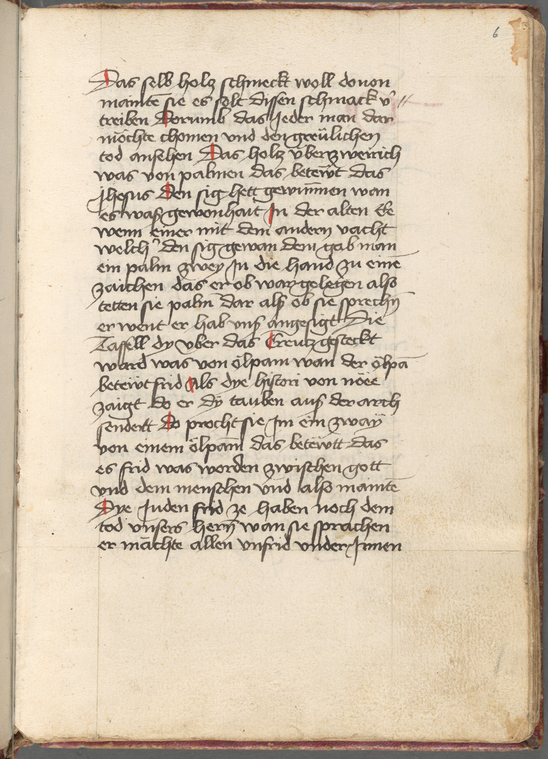 6
Das selb holz schmeckt woll douon
mainte sie es solt dissen schmack v̊
treiben Dorumb das Jeder man dar
möchte chomen vnd den greülichen
tod ansehen Das holz überzwerich
was von palmen das betewt das
Jhesus Den sig hett gewünnen wan
es was gewonhait Jn der alten Ee
wenn einer mit dem andern vacht
welch' den sig gewan dem gab man
ein palm zwey Jn die hand zu eine
zaichen das er ob war gelegen also
teten sie palm dar als ob sie sprechn
er went er hab vns angesigt Die
Tafell dy vber das Creutz gesteckt
ward was von ölpam wan der ölpa
betewt frid Als dye histori von noee
zaigt do er dy tauben aus der arch
sendett do procht sie Jm ein zway
von einem ölpam das betewtt das
es frid was worden zwischen gott
vnd dem menschen vnd also mainte
Dye Juden frid ze haben noch dem
tod vnsers hern wan sie sprachen
er machte allen vnfrid vnder Jnnen